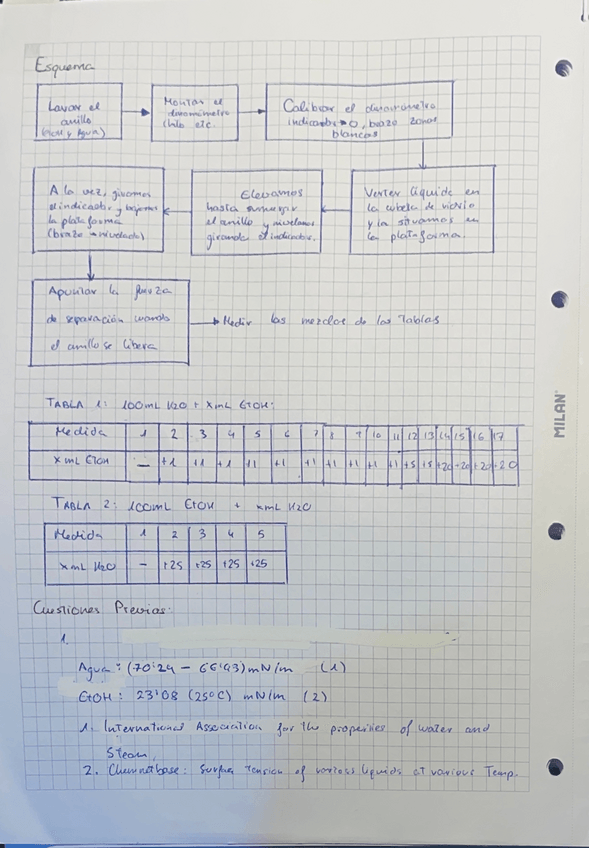 Esquema
Lavar el
anillo
(EtOH y Agua)
Montar el
dinamómetro
hilo etc.
Calibrar el dinamómetro
indicador → 0, brazo zonas
blancas
Verter líquido en
la cubeta de vidrio
y la situamos en
la plataforma.
Elevamos
hasta sumergir
el anillo y nivelamos
girando el indicador.
A la vez, giramos
el indicador y bajamos
la plataforma
(brazo → nivelado)
Apuntar la fuerza
de separación cuando
el anillo se libera
→ Medir las mezclas de las Tablas
TABLA 1: 100mL H2O + XmL EtOH:
Medida 1 2 3 4 5 6 7 8 9 10 11 12 13 14 15 16 17
X mL EtOH — +1 +1 +1 +1 +1 +1 +1 +1 +1 +1 +5 +5 +20 +20 +20 +20
TABLA 2: 100mL EtOH + xmL H2O
Medida 1 2 3 4 5
x mL H2O - +25 +25 +25 +25
Cuestiones Previas:
1.
Agua: (70'24 - 66'93) mN/m (1)
EtOH: 23'08 (25ºC) mN/m (2)
1. International Association for the properties of water and
Steam.
2. : Surface Tension of various liquids at various Temp.
MILAN